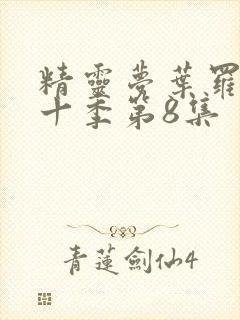 精靈夢葉羅
十季第8集
青蓮劍仙4